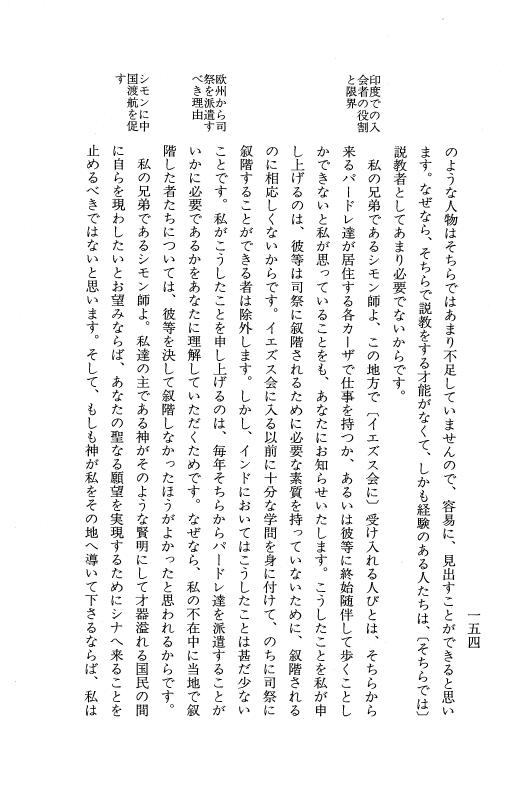 一五四
のような人物はそちらではあまり不足していませんので、容易に、見出すことができると思い
ます。なぜなら、そちらで説教をする才能がなくて、しかも経験のある人たちは、〔そちらでは〕
説教者としてあまり必要でないからです。
印度での入
会者の役割
と限界
私の兄弟であるシモン師よ、この地方で〔イエズス会に〕受け入れる人びとは、そちらから
来るパードレ達が居住する各カーザで仕事を持つか、あるいは彼等に終始随伴して歩くことし
かできないと私が思っていることをも、あなたにお知らせいたします。こうしたことを私が申
し上げるのは、彼等は司祭に叙階されるために必要な素質を持っていないために、叙階される
のに相応しくないからです。イエズス会に入る以前に十分な学問を身に付けて、のちに司祭に
叙階することができる者は除外します。しかし、インドにおいてはこうしたことは甚だ少ない
欧州から司
祭を派遣す
べき理由
ことです。私がこうしたことを申し上げるのは、毎年そちらからパードレ達を派遣することが
いかに必要であるかをあなたに理解していただくためです。なぜなら、私の不在中に当地で叙
階した者たちについては、彼等を決して叙階しなかったほうがよかったと思われるからです。
シモンに中
国渡航を促
す
私の兄弟であるシモン師よ。私達の主である神がそのような賢明にして才器溢れる国民の間
に自らを現わしたいとお望みならば、あなたの聖なる願望を実現するためにシナへ来ることを
止めるべきではないと思います。そして、もしも神が私をその地へ導いて下さるならば、私は